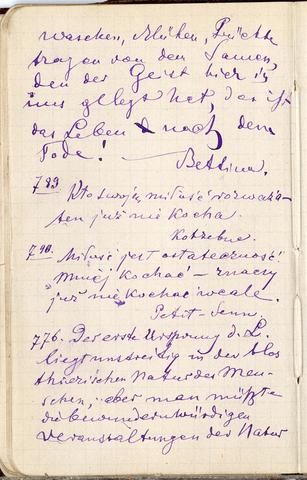 wachsen, blühen, Früchte
tragen von dem Samen,
den der Geist hier in
uns gelegt hat, das ist
das Leben nach dem
Tode!
Bettina.
789. Kto swoją miłość rozważa
ten już nie kocha.
Kotzebue.
790. Miłość jest ostatecznością
mniej kochać – znaczy
już nie kochać wcale.
Petit-Senn.
776. Der erste Ursprung d. L.
liegt unstreitig in der blos
thierischen Natur des Men-
schen, aber man müßte
die bewundernswürdigen
Veranstaltungen der Natur